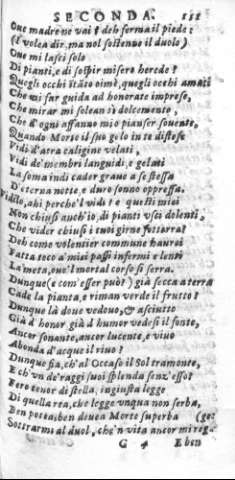 SECONDA. 111
Oue madre ne vai? deh ferma il piede:
(E volea dir, ma nol sostenne il duolo)
Oue mi lasci solo
Di pianti, e di sospir misero herede?
Quegli occhi oimè, quegli occhi amati
Che mi fur guida ad honorate imprese,
Che mirar mi solean sì dolcemente,
Che d'ogni affanno mio piauser souente,
Quando Morte il suo gelo in te distese
Vidi d'atra caligine velati,
Vidi de' membri languidi, e gelati
La soma indi cader graue a se stessa
D'eterna notte, e duro sonno oppressa.
Vidilo, ahi perche'l vidi? e questi miei
Non chiusi anch'io, di pianti vsci dolenti,
Che vider chiusi i tuoi girne sotterra?
Deh come volentier commune haurei
Fatta teco a' miei passi infermi e lenti
La meta, oue'l mortal corso si serra.
Dunque (e com'esser può?) già secca a terra
Cade la pianta, e riman verde il frutto?
Dunque là doue vedouo, & asciutto
Già d'honor già d'humor vedesi il fonte,
Ancor sonante, ancor lucente, e viuo
Abonda d'acque il riuo?
Dunque fia, ch'al Occaso il Sol tramonte,
E ch'vn de' raggi suoi splenda senz'esso?
Fero tenor di stella, ingiusta legge
Di quella rea, che legge vnqua non serba,
Ben potea, ben douea Morte superba (ge:
Sottrarmi al duol, che'n vita ancor mi reg-
G 4 Eben